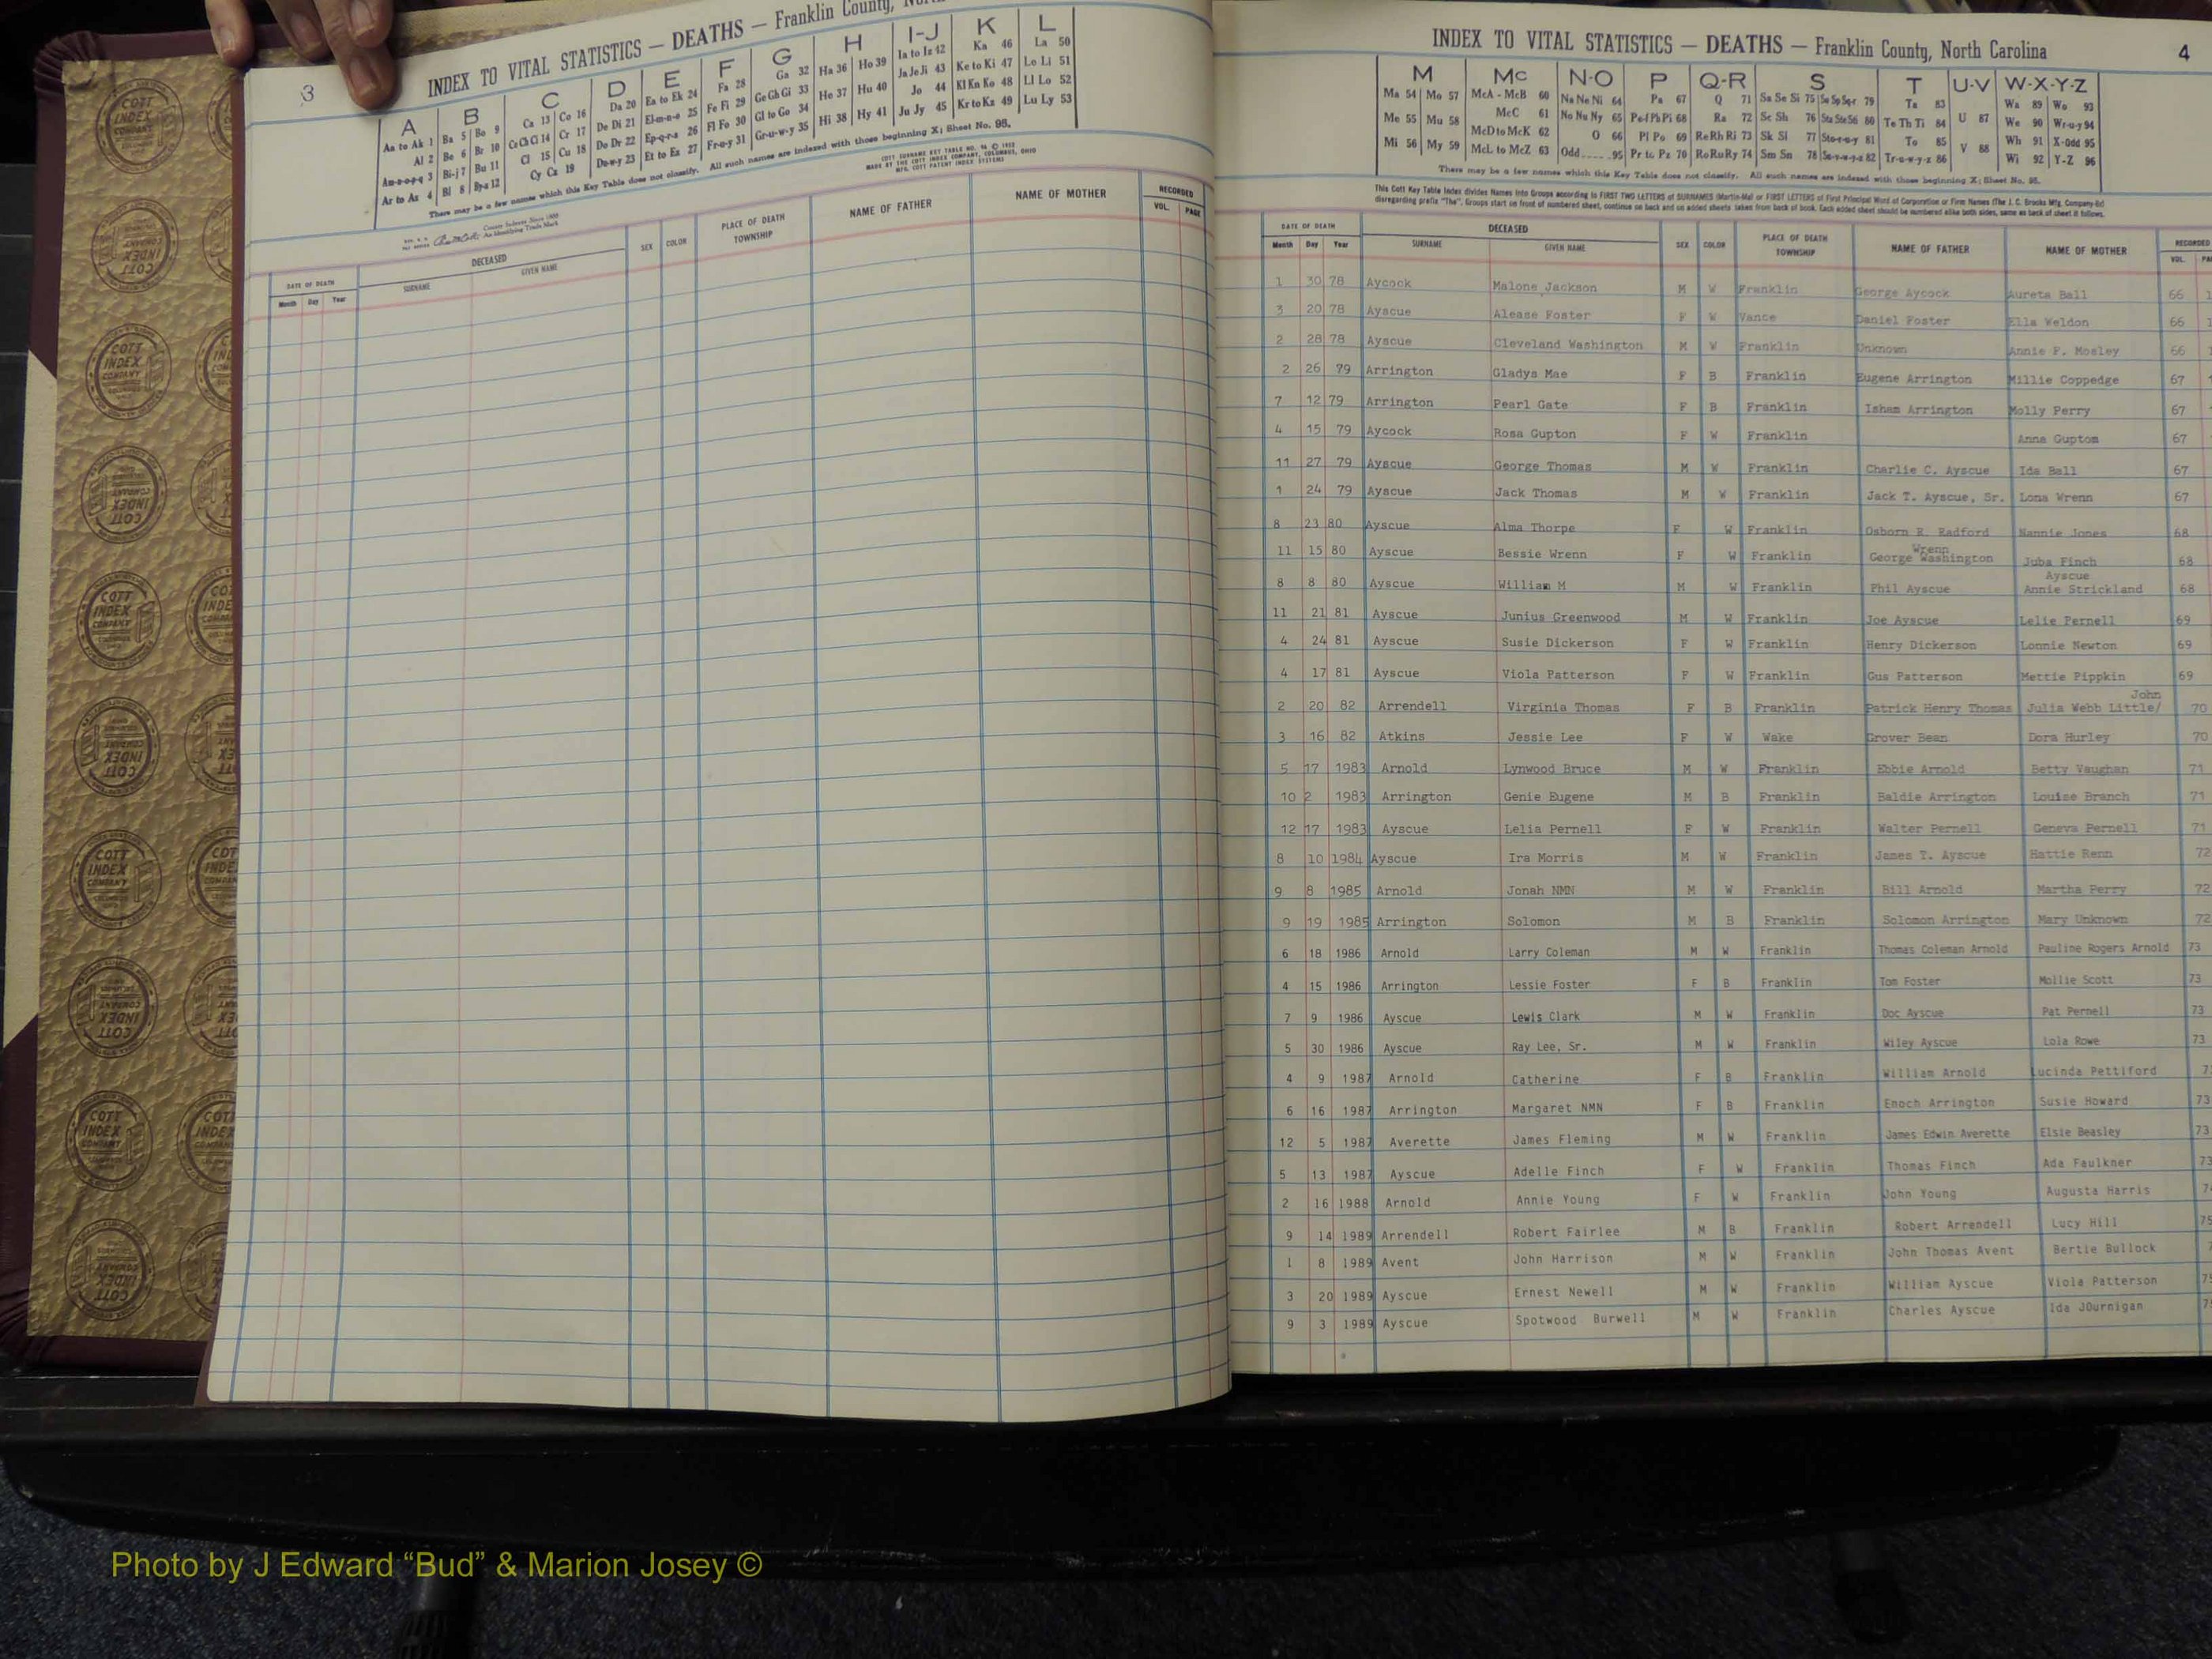 3
INDEX TO VITAL STATISTICS — DEATHS — Franklin County,
A B C D E F G H I-J K L
Aa to Ak 1 Ba 5 Bo 9 Ca 13 Co 16 Da 20 Ea to Ek 24 Fa 28 Ga 32 Ha 36 Ho 39 Ia to Iz 42 Ka 46 La 50
Al 2 Be 6 Br 10 Ce Ch Ci 14 Cr 17 De Di 21 El-m-n-o 25 Fe Fi 29 Ge Gh Gi 33 He 37 Hu 40 Ja Je Ji 43 Ke to Ki 47 Le Li 51
Am-n-o-p-q 3 Bi-j 7 Bu 11 Cl 15 Cu 18 Do Dr 22 Ep-q-r-s 26 Fl Fo 30 Gl to Go 34 Hi 38 Hy 41 Jo 44 Kl Kn Ko 48 Ll Lo 52
Ar to Az 4 Bl 8 By-z 12 Cy Cz 19 Du-w-y 23 Et to Ez 27 Fr-u-y 31 Gr-u-w-y 35 Ju Jy 45 Kr to Kz 49 Lu Ly 53
There may be a few names which this Key Table does not classify. All such names are indexed with those beginning X; Sheet No. 95.
DATE OF DEATH DECEASED SEX COLOR PLACE OF DEATH TOWNSHIP NAME OF FATHER NAME OF MOTHER RECORDED
Month Day Year SURNAME GIVEN NAME VOL. PAGE
INDEX TO VITAL STATISTICS — DEATHS — Franklin County, North Carolina 4
M Mc N-O P Q-R S T U-V W-X-Y-Z
Ma 54 Mo 57 McA - McB 60 Na Ne Ni 64 Pa 67 Q 71 Sa Se Si 75 So Sp Sq-r 79 Ta 83 U 87 Wa 89 Wo 93
Me 55 Mu 58 McC 61 No Nu Ny 65 Pe-f Ph Pi 68 Ra 72 Sc Sh 76 Sta Ste Sti 80 Te Th Ti 84 V 88 We 90 Wr-u-y 94
Mi 56 My 59 McD to McK 62 O 66 Pl Po 69 Re Rh Ri 73 Sk Sl 77 Sto-r-u-y 81 To 85 Wh 91 X-Odd 95
McL to McZ 63 Odd 95 Pr to Pz 70 Ro Ru Ry 74 Sm Sn 78 Su-v-w-y-z 82 Tr-u-w-y-z 86 Wi 92 Y-Z 96
There may be a few names which this Key Table does not classify. All such names are indexed with those beginning X; Sheet No. 95.
This Cott Key Table Index divides Names into Groups according to FIRST TWO LETTERS of SURNAMES (Martin-Ma) or FIRST LETTERS of First Principal Word of Corporation or Firm Names (The J. C. Brooks Mfg. Company-Br)
disregarding prefix "The". Groups start on front of numbered sheet, continue on back and on added sheets taken from back of book. Each added sheet should be numbered alike both sides, same as back of sheet it follows.
DATE OF DEATH DECEASED SEX COLOR PLACE OF DEATH TOWNSHIP NAME OF FATHER NAME OF MOTHER RECORDED
Month Day Year SURNAME GIVEN NAME VOL.
1 30 78 Aycock Malone Jackson M W Franklin George Aycock Aureta Ball 66
3 20 78 Ayscue Alease Foster F W Vance Daniel Foster Ella Weldon 66
2 28 78 Ayscue Cleveland Washington M W Franklin Unknown Annie F. Mosley 66
2 26 79 Arrington Gladys Mae F B Franklin Eugene Arrington Millie Coppedge 67
7 12 79 Arrington Pearl Gate F B Franklin Isham Arrington Molly Perry 67
4 15 79 Aycock Rosa Gupton F W Franklin Anna Gupton 67
11 27 79 Ayscue George Thomas M W Franklin Charlie C. Ayscue Ida Ball 67
1 24 79 Ayscue Jack Thomas M W Franklin Jack T. Ayscue, Sr. Lona Wrenn 67
8 23 80 Ayscue Alma Thorpe F W Franklin Osborn R. Radford Nannie Jones 68
11 15 80 Ayscue Bessie Wrenn F W Franklin George Washington Wrenn Juba Finch 68
8 8 80 Ayscue William M M W Franklin Phil Ayscue Annie Strickland Ayscue 68
11 21 81 Ayscue Junius Greenwood M W Franklin Joe Ayscue Lelie Pernell 69
4 24 81 Ayscue Susie Dickerson F W Franklin Henry Dickerson Lonnie Newton 69
4 17 81 Ayscue Viola Patterson F W Franklin Gus Patterson Mettie Pippkin 69
2 20 82 Arrendell Virginia Thomas F B Franklin Patrick Henry Thomas Julia Webb Little/ John 70
3 16 82 Atkins Jessie Lee F W Wake Grover Bean Dora Hurley 70
5 17 1983 Arnold Lynwood Bruce M W Franklin Ebbie Arnold Betty Vaughan 71
10 2 1983 Arrington Genie Eugene M B Franklin Baldie Arrington Louise Branch 71
12 17 1983 Ayscue Lelia Pernell F W Franklin Walter Pernell Geneva Pernell 71
8 10 1984 Ayscue Ira Morris M W Franklin James T. Ayscue Hattie Renn 72
9 8 1985 Arnold Jonah NMN M W Franklin Bill Arnold Martha Perry 72
9 19 1985 Arrington Solomon M B Franklin Solomon Arrington Mary Unknown 72
6 18 1986 Arnold Larry Coleman M W Franklin Thomas Coleman Arnold Pauline Rogers Arnold 73
4 15 1986 Arrington Lessie Foster F B Franklin Tom Foster Mollie Scott 73
7 9 1986 Ayscue Lewis Clark M W Franklin Doc Ayscue Pat Pernell 73
5 30 1986 Ayscue Ray Lee, Sr. M W Franklin Wiley Ayscue Lola Rowe 73
4 9 1987 Arnold Catherine F B Franklin William Arnold Lucinda Pettiford
6 16 1987 Arrington Margaret NMN F B Franklin Enoch Arrington Susie Howard 73
12 5 1987 Averette James Fleming M W Franklin James Edwin Averette Elsie Beasley 73
5 13 1987 Ayscue Adelle Finch F W Franklin Thomas Finch Ada Faulkner 73
2 16 1988 Arnold Annie Young F W Franklin John Young Augusta Harris
9 14 1989 Arrendell Robert Fairlee M B Franklin Robert Arrendell Lucy Hill 75
1 8 1989 Avent John Harrison M W Franklin John Thomas Avent Bertie Bullock
3 20 1989 Ayscue Ernest Newell M W Franklin William Ayscue Viola Patterson
9 3 1989 Ayscue Spotwood Burwell M W Franklin Charles Ayscue Ida JOurnigan
Photo by J Edward “Bud” & Marion Josey ©